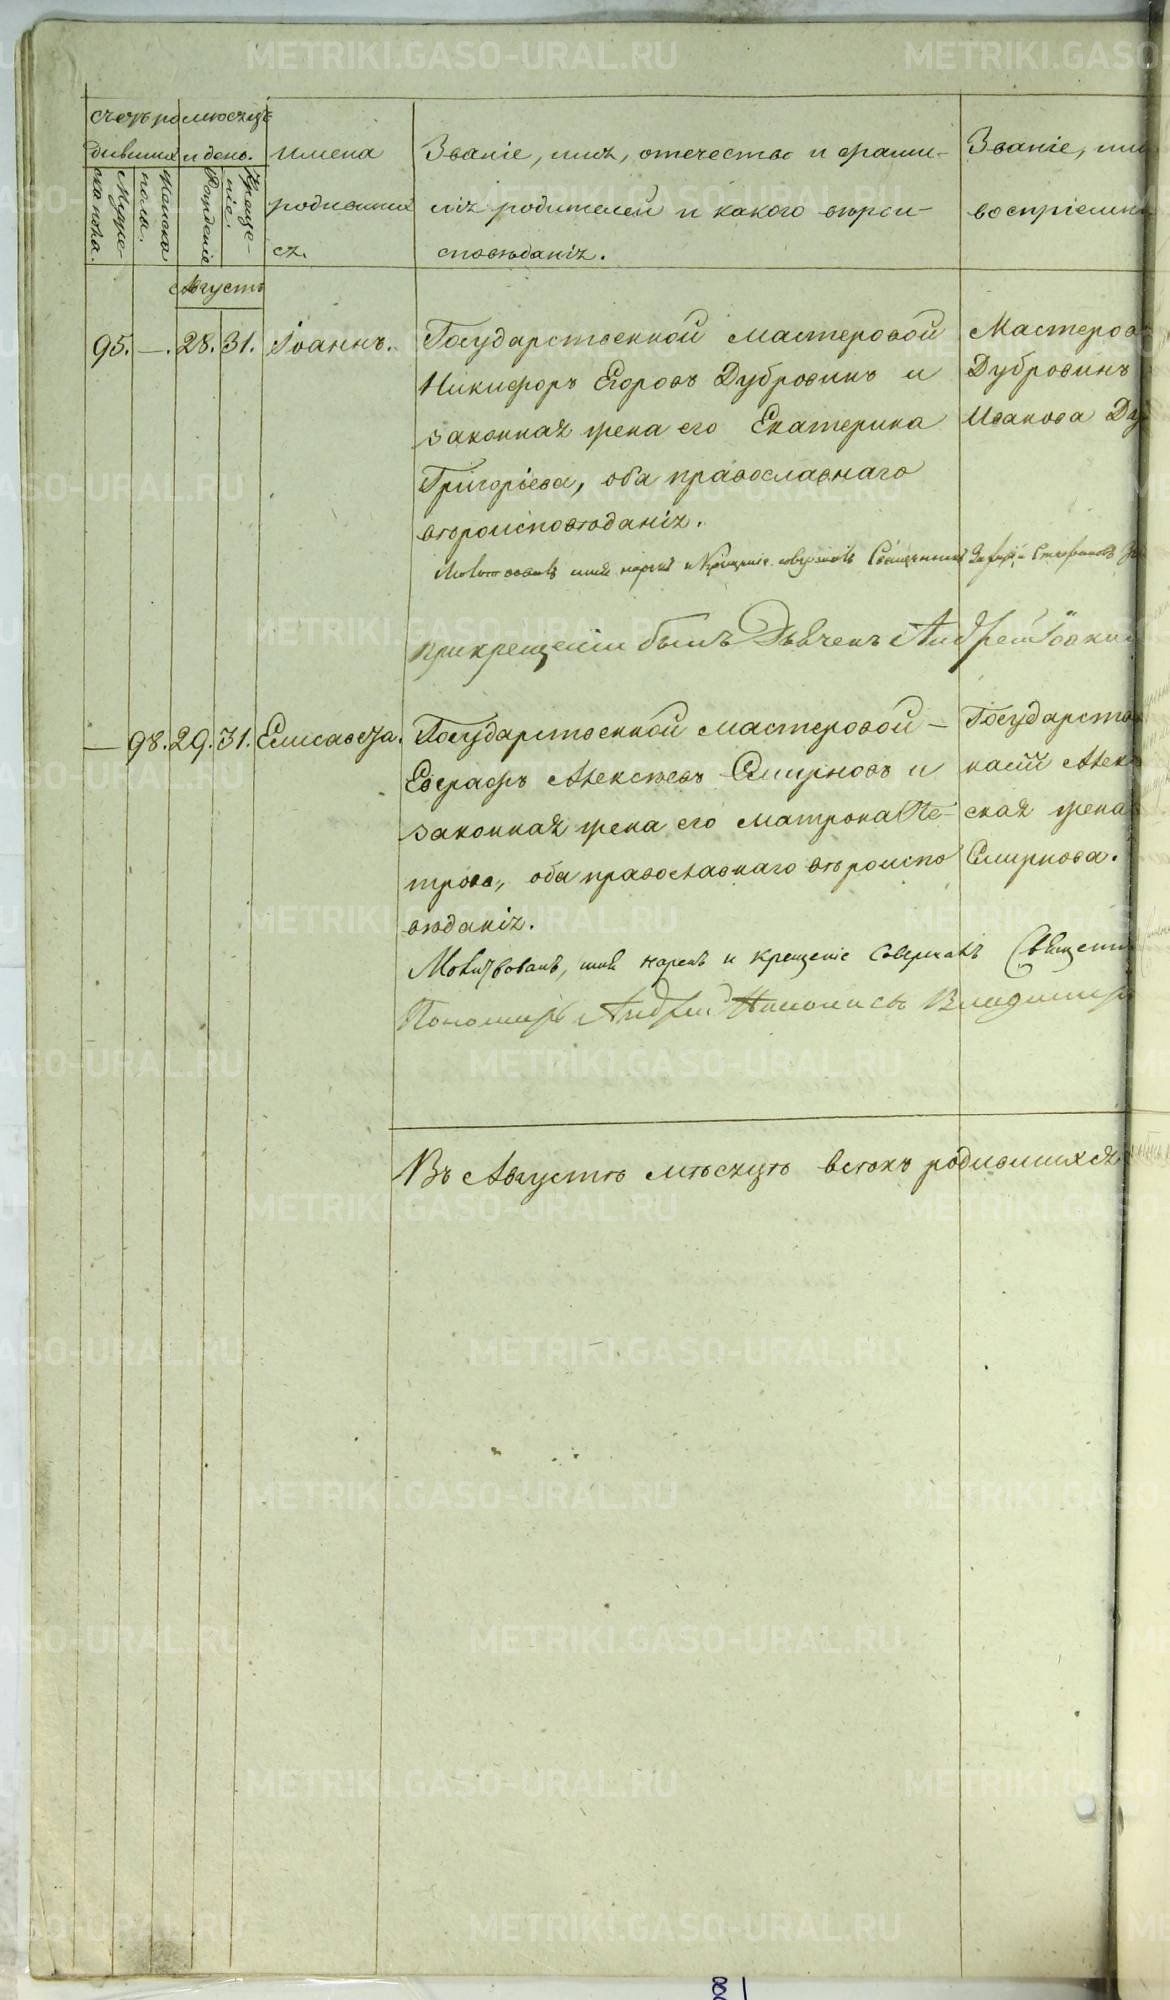 METRIKI.GASO-URAL.RU
Счетъ ро мѣсяцъ
дившихъ и день. имена Званіе, имя, отечество и фами- Званіе, имя
Мужеска пола. Женска пола. Рожденіе Крещеніе. родившихся. лія родителей и какого вѣрои-сповѣданія. воспріемни
Августъ
95. —. 28. 31. Іоаннъ. Государственной мастеровой Мастеров
Никифоръ Егоровъ Дубровинъ и Дубровинъ
законная жена его Екатерина Иванова Ду
Григорьева, оба православнаго
вѣроисповѣданія.
имя нарекъ и крещеніе совершилъ Священникъ Стефановъ
при крещеніи былъ Дьячекъ Андрей
— 98. 29. 31. Елисавета. Государственной мастеровой — Государств
Евграфъ Алексѣевъ Смирновъ и Алек
законная жена его Матрона Пе- ская жена
трова, оба православнаго вѣроиспо Смирнова.
вѣданія.
Молитвовалъ, имя нарекъ и крещеніе совершалъ Священ
Пономарь Андрей Владимир
Въ Августѣ мѣсяцѣ всѣхъ родившихся
81